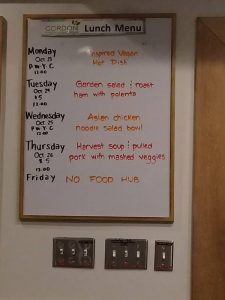 GORDON
Lunch Menu
Monday
Oct 23
PWYC
12:00
Inspired Vegan
Hot Dish
Tuesday
Oct 24
$5
12:00
Garden salad & roast
ham with polenta
Wednesday
Oct 25
PWYC
12:00
Asian chicken
noodle salad bowl
Thursday
Oct 26
$5
12:00
Harvest soup & pulled
pork with mashed veggies
Friday
NO FOOD HUB